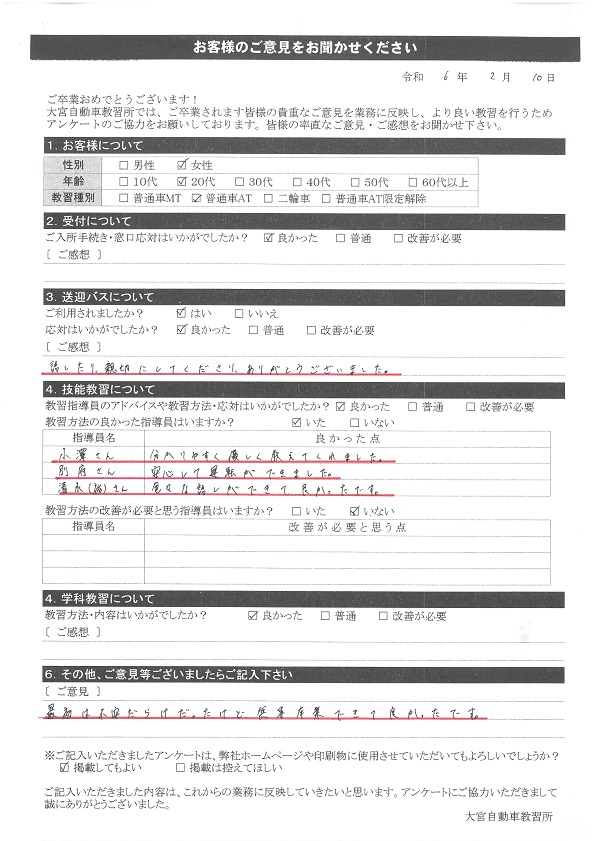 お客様のご意見をお聞かせください
令和 6 年 2 月 10 日
ご卒業おめでとうございます！
大宮自動車教習所では、ご卒業されます皆様の貴重なご意見を業務に反映し、より良い教習を行うため
アンケートのご協力をお願いしております。皆様の率直なご意見・ご感想をお聞かせ下さい。
1. お客様について
性別 □ 男性 ☑ 女性
年齢 □ 10代 ☑ 20代 □ 30代 □ 40代 □ 50代 □ 60代以上
教習種別 □ 普通車MT ☑ 普通車AT □ 二輪車 □ 普通車AT限定解除
2. 受付について
ご入所手続き・窓口応対はいかがでしたか？ ☑ 良かった □ 普通 □ 改善が必要
〔 ご感想 〕
3. 送迎バスについて
ご利用されましたか？ ☑ はい □ いいえ
応対はいかがでしたか？ ☑ 良かった □ 普通 □ 改善が必要
〔 ご感想 〕
話したり、親切にしてくださり、ありがとうございました。
4. 技能教習について
教習指導員のアドバイスや教習方法・応対はいかがでしたか？ ☑ 良かった □ 普通 □ 改善が必要
教習方法の良かった指導員はいますか？ ☑ いた □ いない
指導員名 良かった点
小澤さん 分かりやすく優しく教えてくれました。
別府さん 安心して運転ができました。
清水(裕)さん 色々な話しができて良かったです。
教習方法の改善が必要と思う指導員はいますか？ □ いた ☑ いない
指導員名 改善が必要と思う点
4. 学科教習について
教習方法・内容はいかがでしたか？ ☑ 良かった □ 普通 □ 改善が必要
〔 ご感想 〕
6. その他、ご意見等ございましたらご記入下さい
〔 ご意見 〕
最初は不安だらけだったけど無事卒業できて良かったです。
※ご記入いただきましたアンケートは、弊社ホームページや印刷物に使用させていただいてもよろしいでしょうか？
☑ 掲載してもよい □ 掲載は控えてほしい
ご記入いただきました内容は、これからの業務に反映していきたいと思います。アンケートにご協力いただきまして
誠にありがとうございました。
大宮自動車教習所